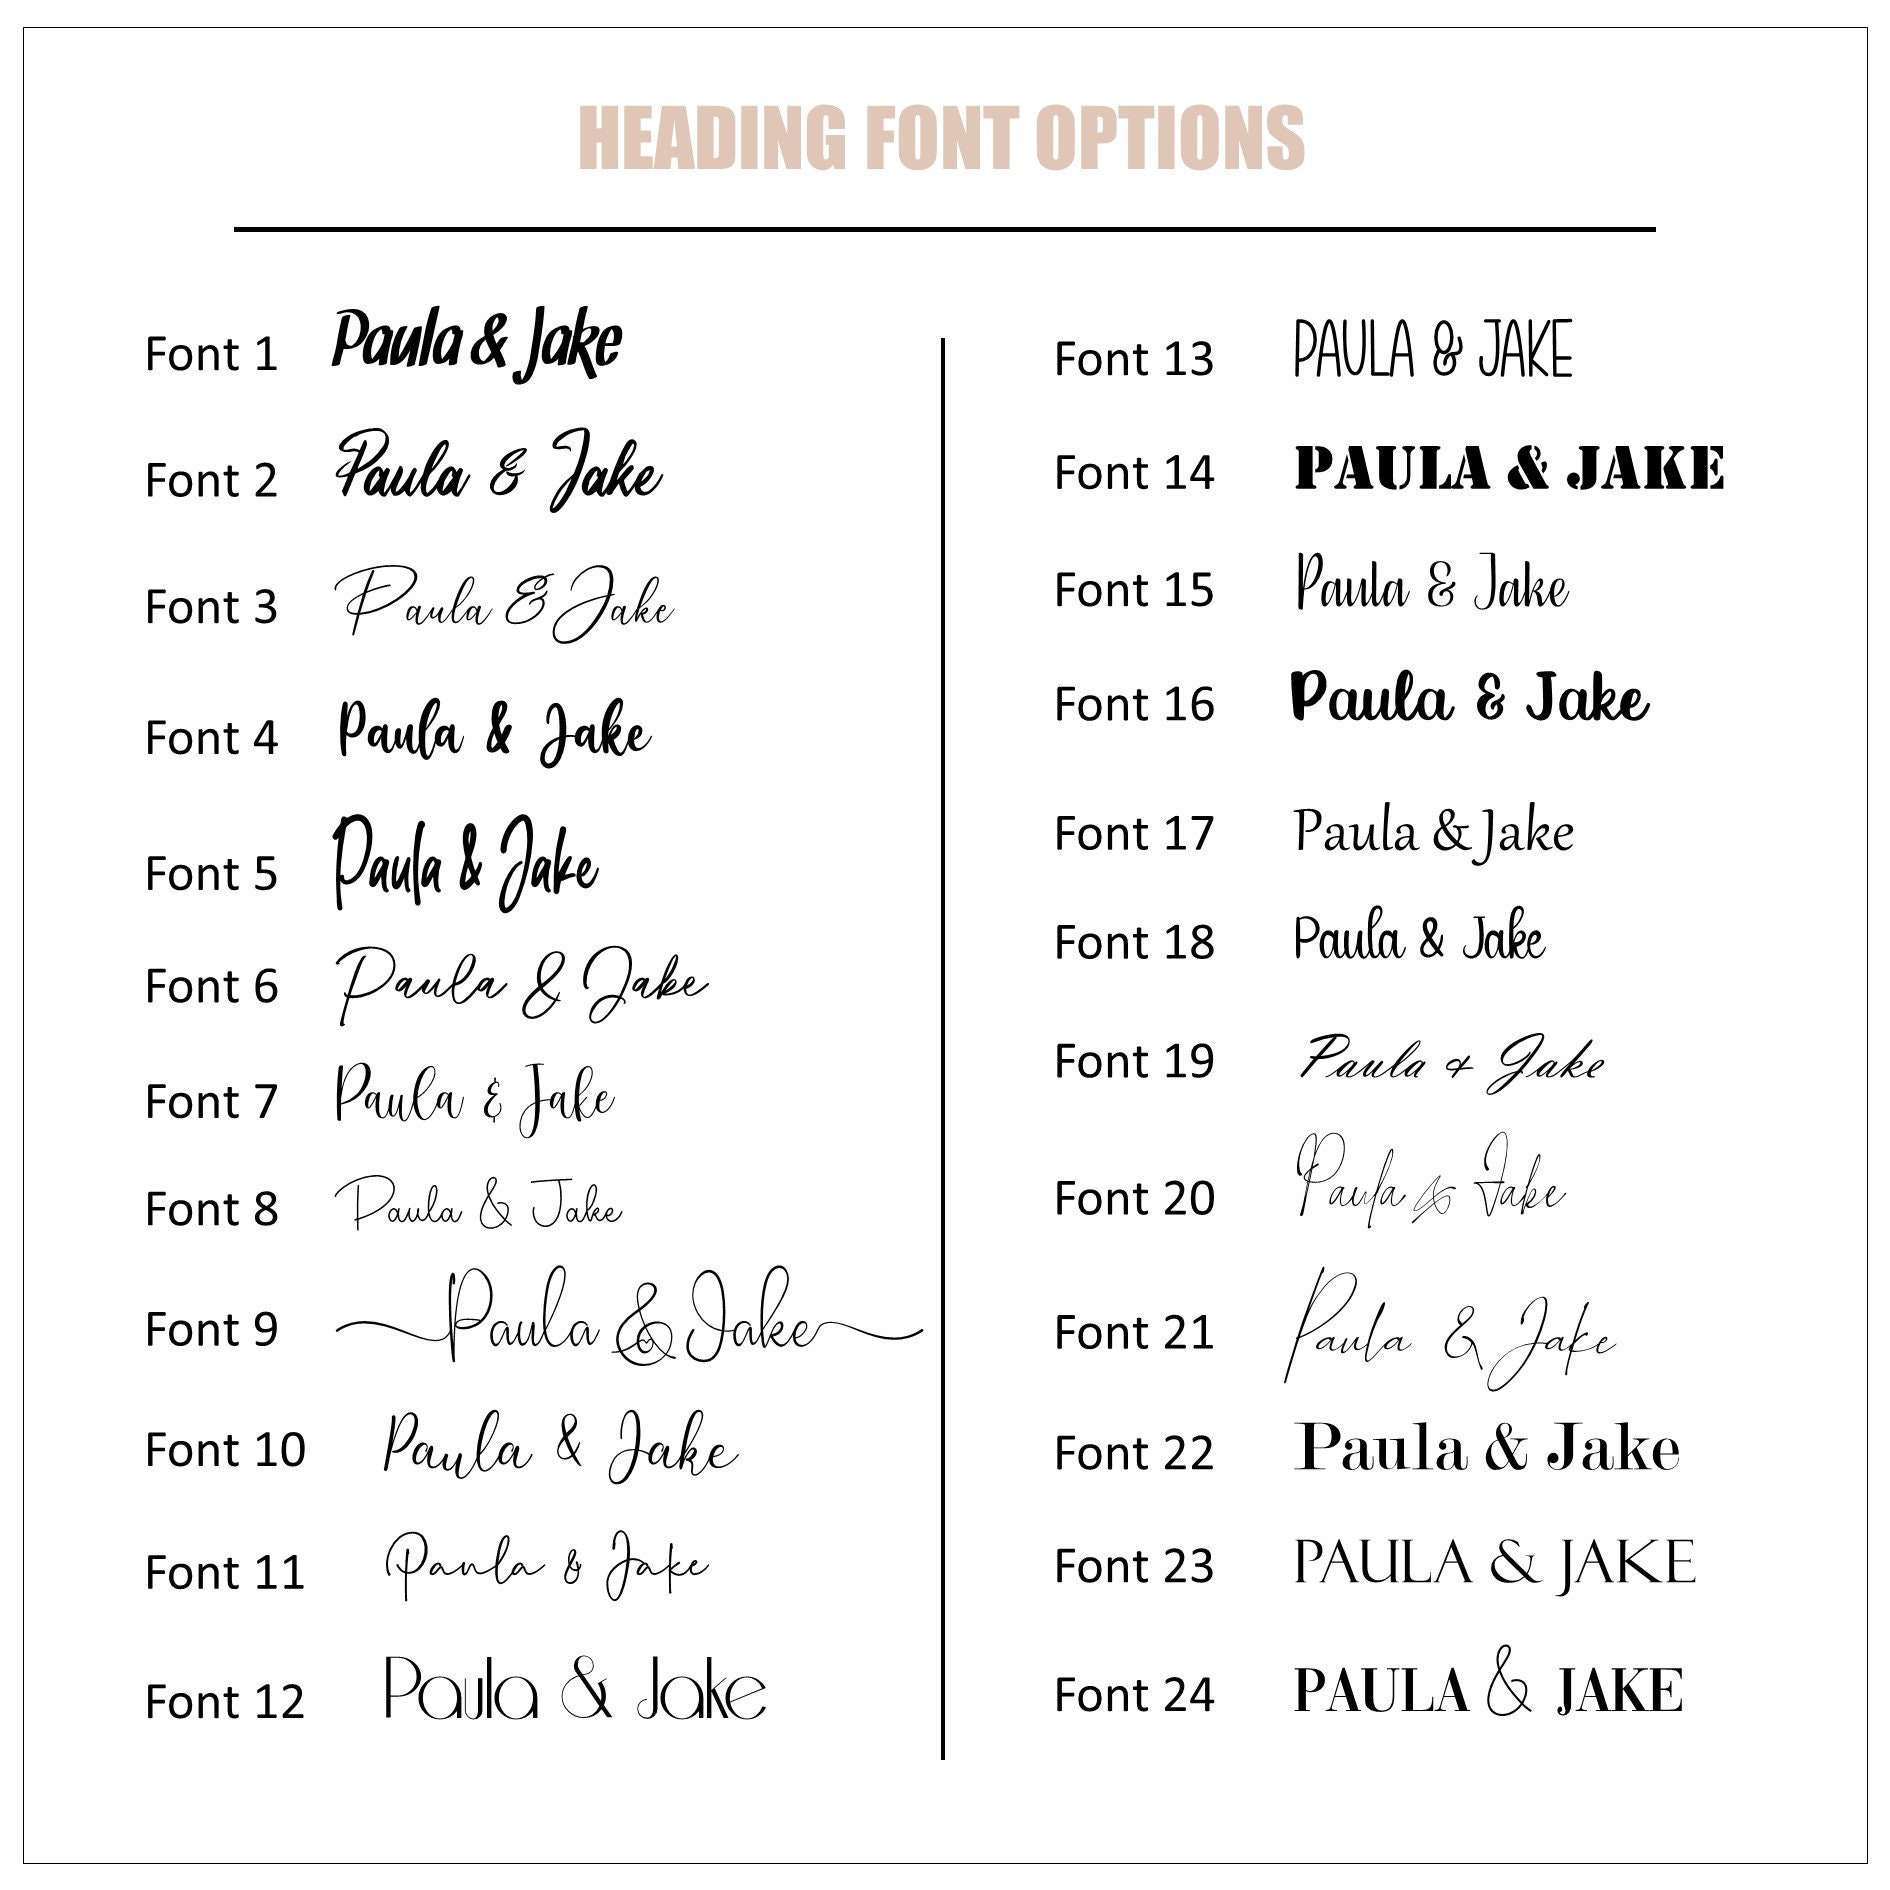 HEADING FONT OPTIONS
Font 1 Paula & Jake
Font 2 Paula & Jake
Font 3 Paula & Jake
Font 4 Paula & Jake
Font 5 Paula & Jake
Font 6 Paula & Jake
Font 7 Paula & Jake
Font 8 Paula & Jake
Font 9 Paula & Jake
Font 10 Paula & Jake
Font 11 Paula & Jake
Font 12 Paula & Jake
Font 13 PAULA & JAKE
Font 14 PAULA & JAKE
Font 15 Paula & Jake
Font 16 Paula & Jake
Font 17 Paula & Jake
Font 18 Paula & Jake
Font 19 Paula & Jake
Font 20 Paula & Jake
Font 21 Paula & Jake
Font 22 Paula & Jake
Font 23 PAULA & JAKE
Font 24 PAULA & JAKE